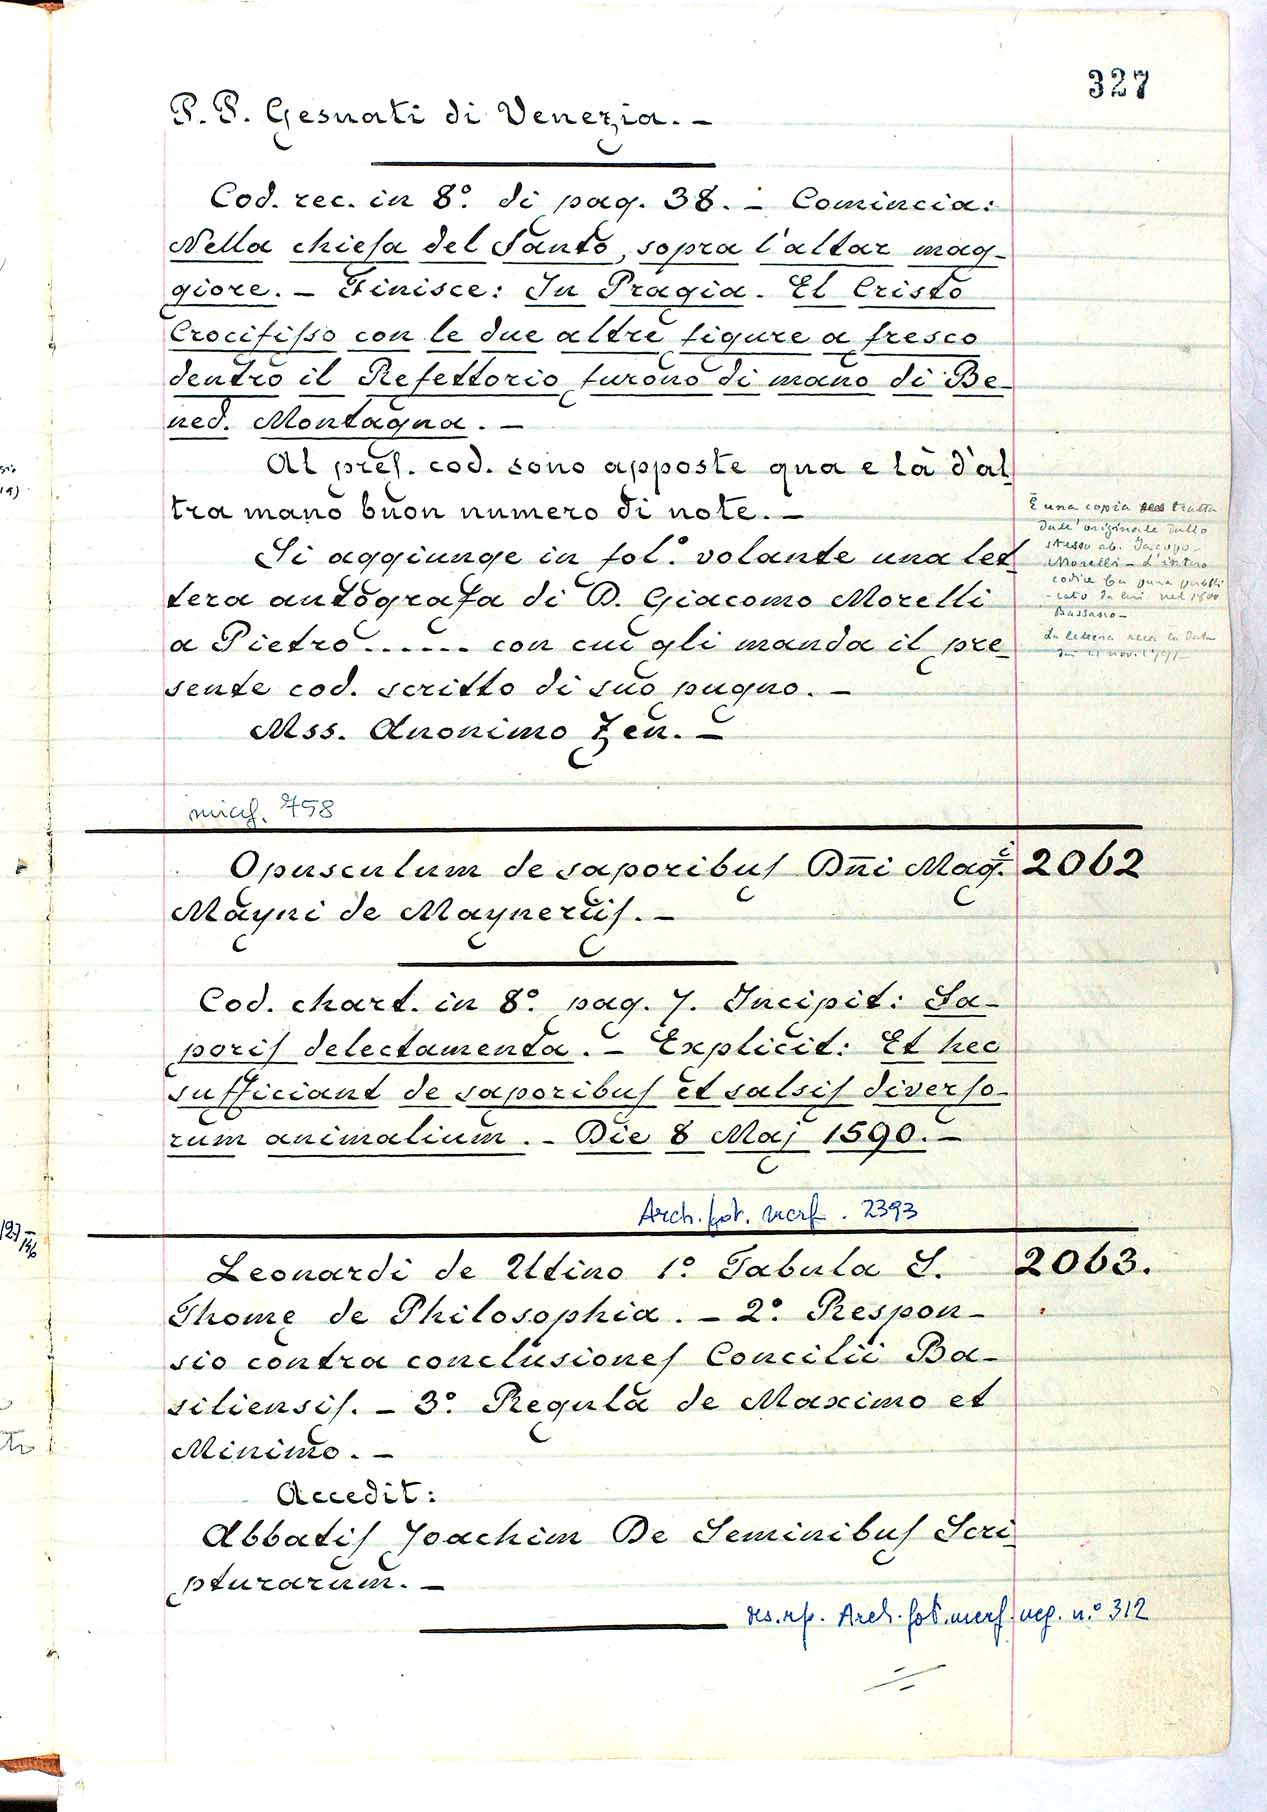 327
P. P. Gesuati di Venezia. –
Cod. rec. in 8º. di pag. 38. – Comincia:
Nella chiesa del Santo, sopra l'altar mag-
giore. – Finisce: In Pragia. El Cristo
Crocifisso con le due altre figure a fresco
dentro il Refettorio furono di mano di Be-
ned. Montagna. –
Al pres. cod. sono apposte qua e là d'al-
tra mano buon numero di note. –
Si aggiunge in fol.º volante una let-
tera autografa di D. Giacomo Morelli
a Pietro ....... con cui gli manda il pre-
sente cod. scritto di suo pugno. –
Mss. Anonimo Zen. –
È una copia tratta
dall'originale dallo
stesso ab. Jacopo
Morelli – L'intero
codice fu
da lui nel 1800
Bassano –
La lettera reca la data
micf. 758
Opusculum de saporibus Dñi Mag.i
2062
Mayni de Mayneriis. –
Cod. chart. in 8º. pag. 7. Incipit: Sa-
poris delectamenta. – Explicit: Et hec
sufficiant de saporibus et salsis diverso-
rum animalium. – Die 8 Maj 1590. –
Arch. fot. micf. 2393
Leonardi de Utino 1º. Tabula S.
2063.
Thomę de Philosophia. – 2º. Respon-
sio contra conclusiones Concilii Ba-
siliensis. – 3º. Regula de Maximo et
Minimo. –
Accedit:
Abbatis Joachim De Seminibus Scri-
pturarum. –
Arch. fot. micf. neg. n.º 312